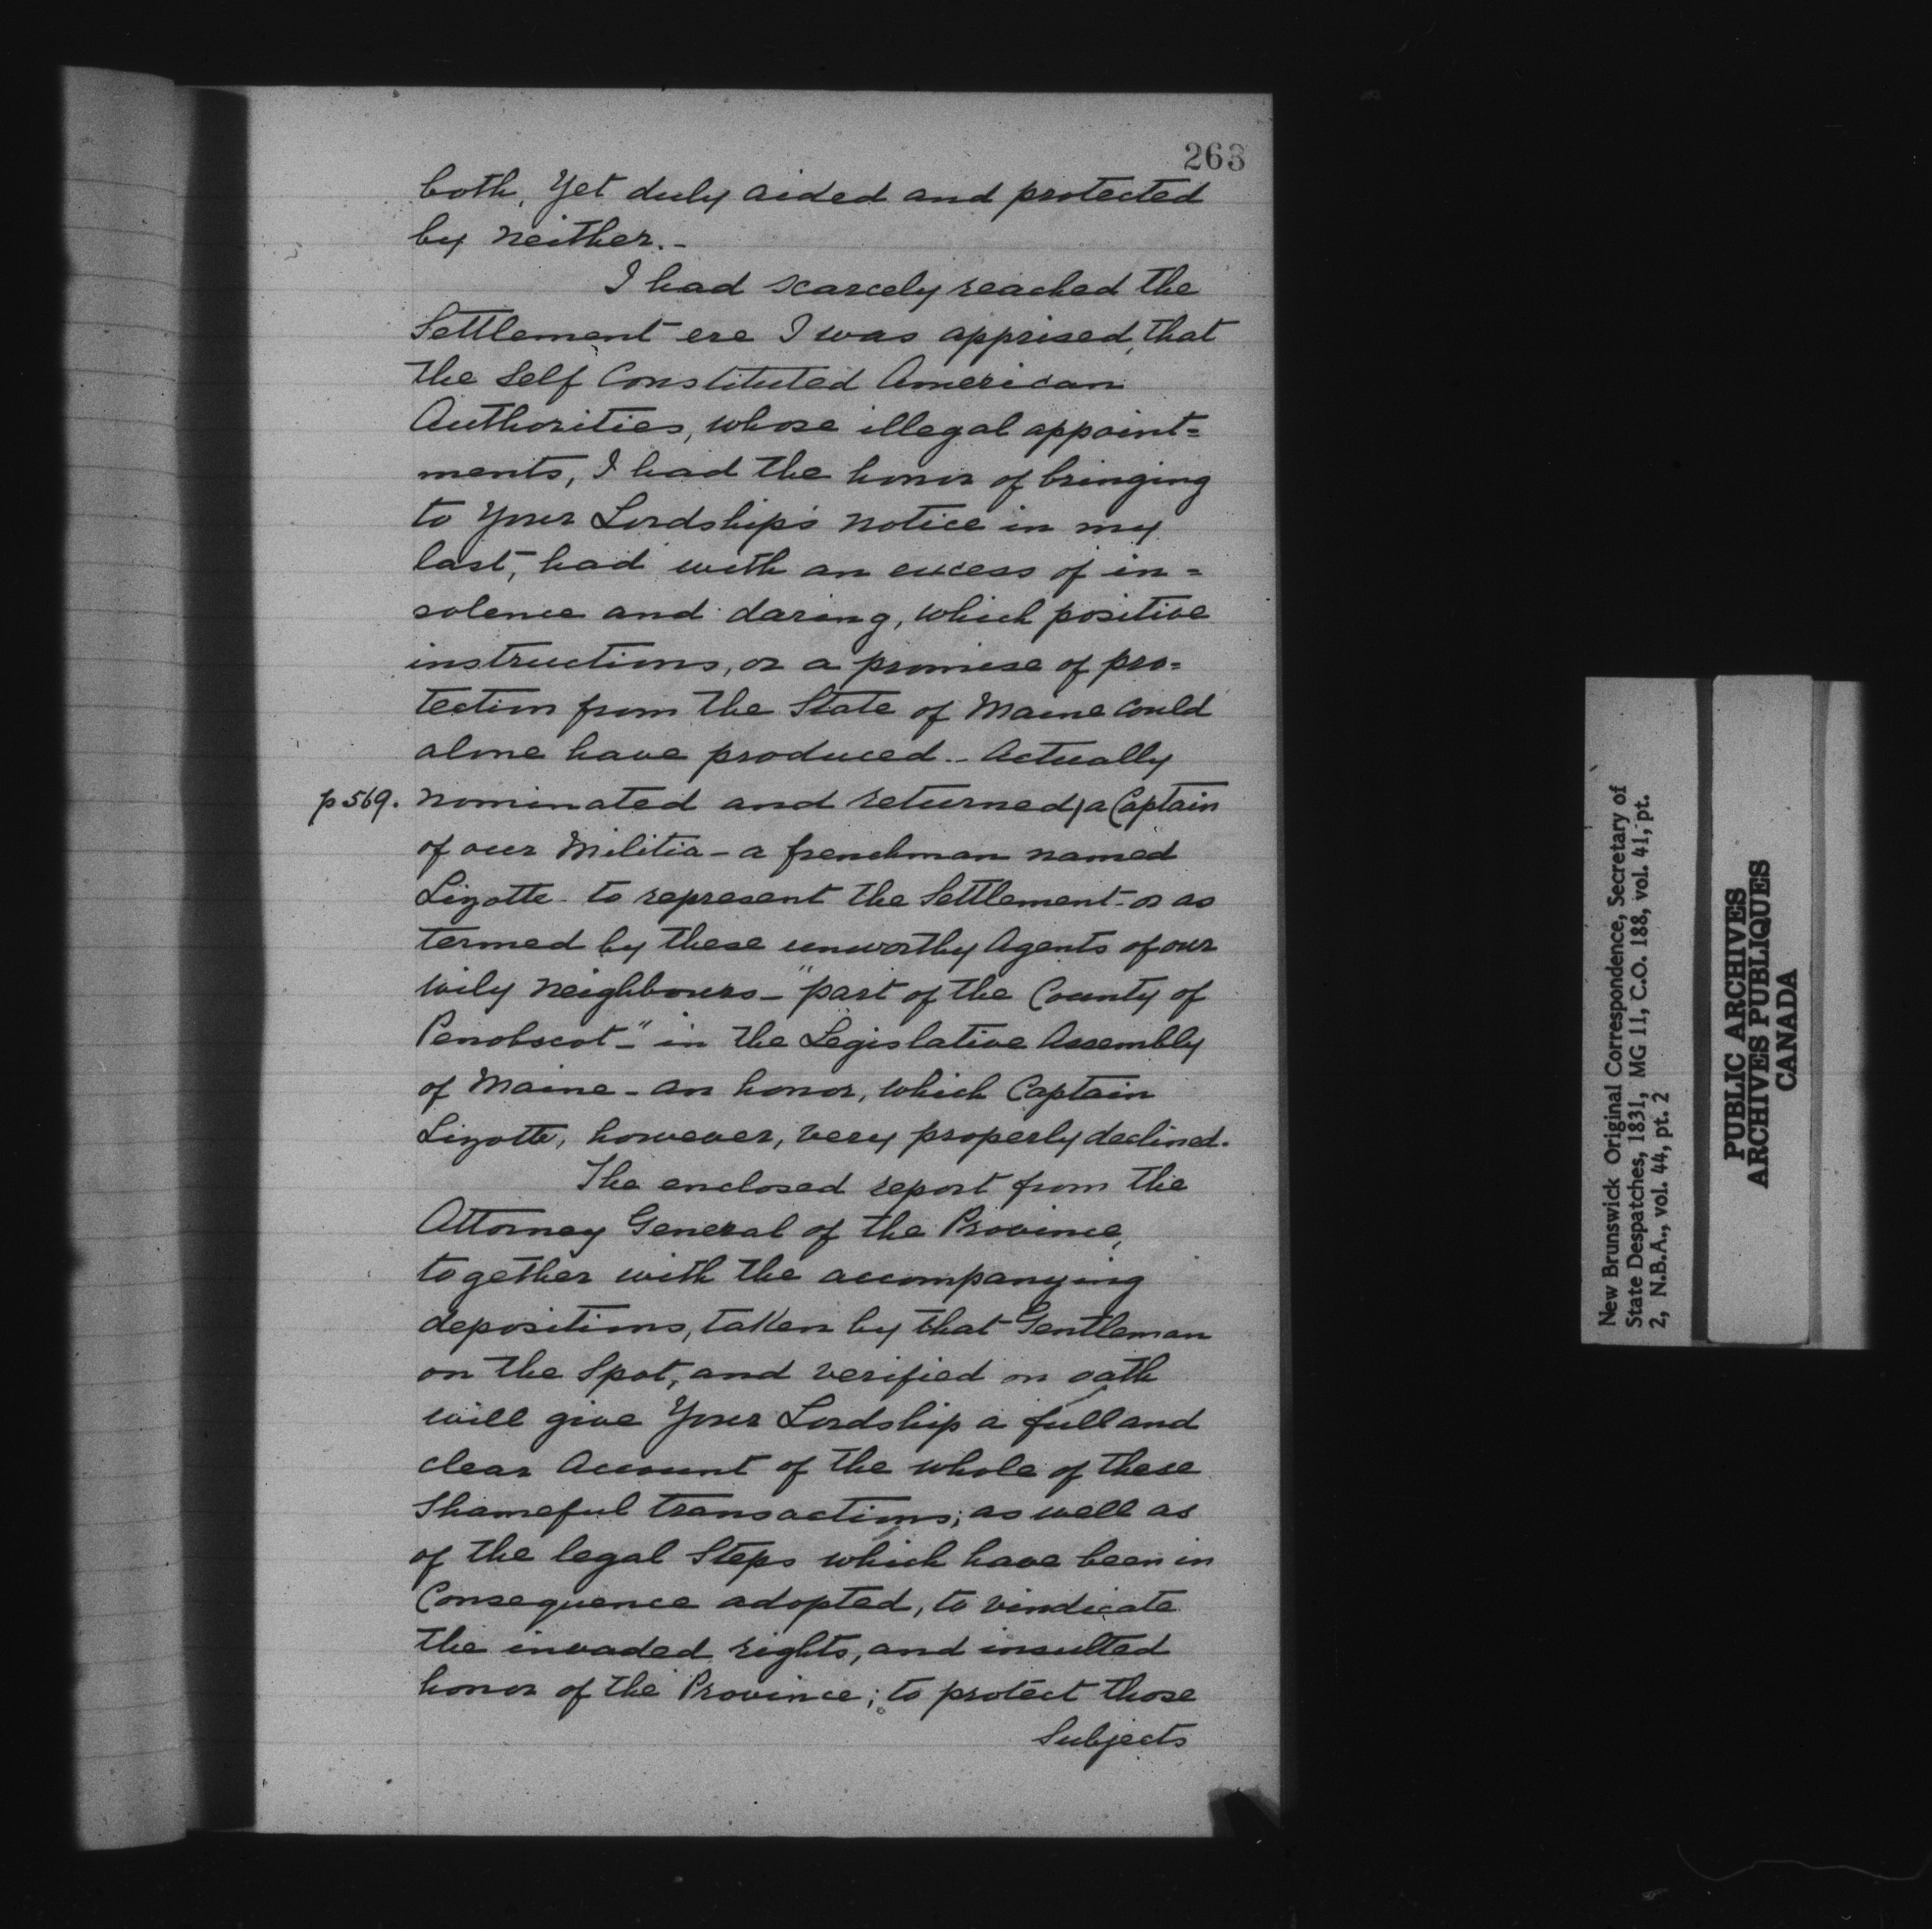 263
both, Yet duly aided and protected
by neither.-
I had scarcely reached the
Settlement ere I was apprised, that
the Self Constituted American
Authorities, whose illegal appoint=
ments, I had the honor of bringing
to Your Lordship's notice in my
last, had with an excess of in=
solence and daring, which positive
instructions, or a promise of pro=
tection from the State of Maine could
alone have produced - Actually
p 569. nominated and returned, a Captain
of our Militia - a frenchman named
Lizotte - to represent the Settlement - or as
termed by these unworthy Agents of our
wily neighbours - "part of the County of
Penobscot -" in the Legislative Assembly
of Maine - an honor, which Captain
Lizotte, however, very properly declined.
The enclosed report from the
Attorney General of the Province,
together with the accompanying
depositions, taken by that Gentleman
on the Spot, and verified on oath
will give Your Lordship a full and
clear Account of the whole of these
Shameful transactions; as well as
of the legal Steps which have been in
Consequence adopted, to vindicate
the invaded rights, and insulted
honor of the Province; to protect those
Subjects
New Brunswick Original Correspondence, Secretary of
State Despatches, 1831, MG 11, C.O. 188, vol. 41, pt.
2, N.B.A., vol. 44, pt. 2
PUBLIC ARCHIVES
ARCHIVES PUBLIQUES
CANADA